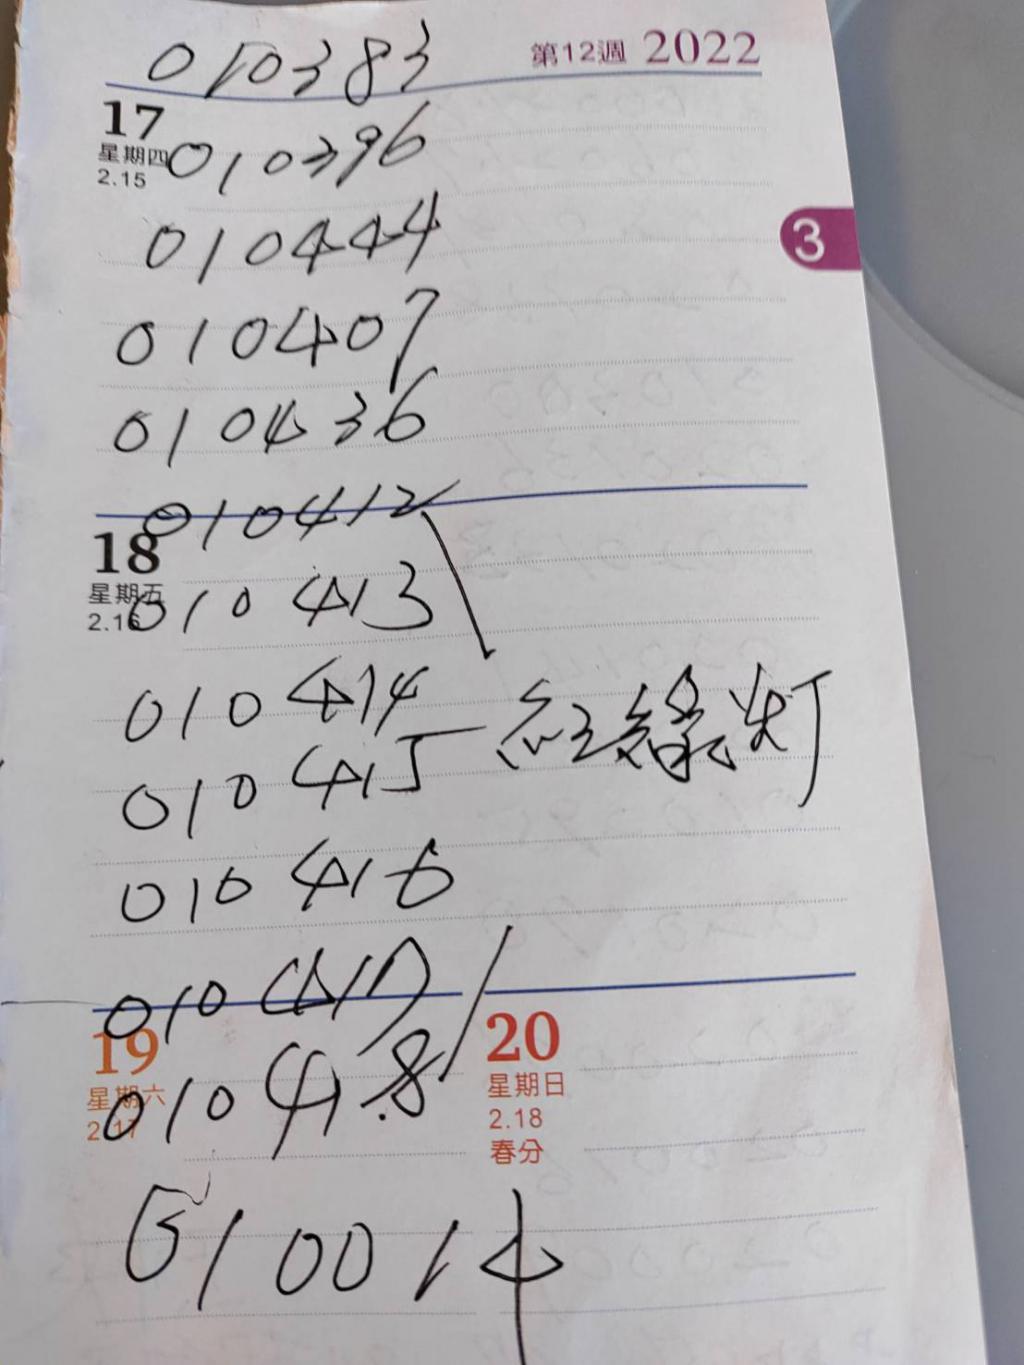 010383 第12週 2022
17
星期四 010396
2.15
010444
3
010407
010436
010412
18
星期五 010413
2.16
010414
010415 红綠灯
010416
010417
19 20
星期六 星期日
010418 2.18
2.17 春分
010014